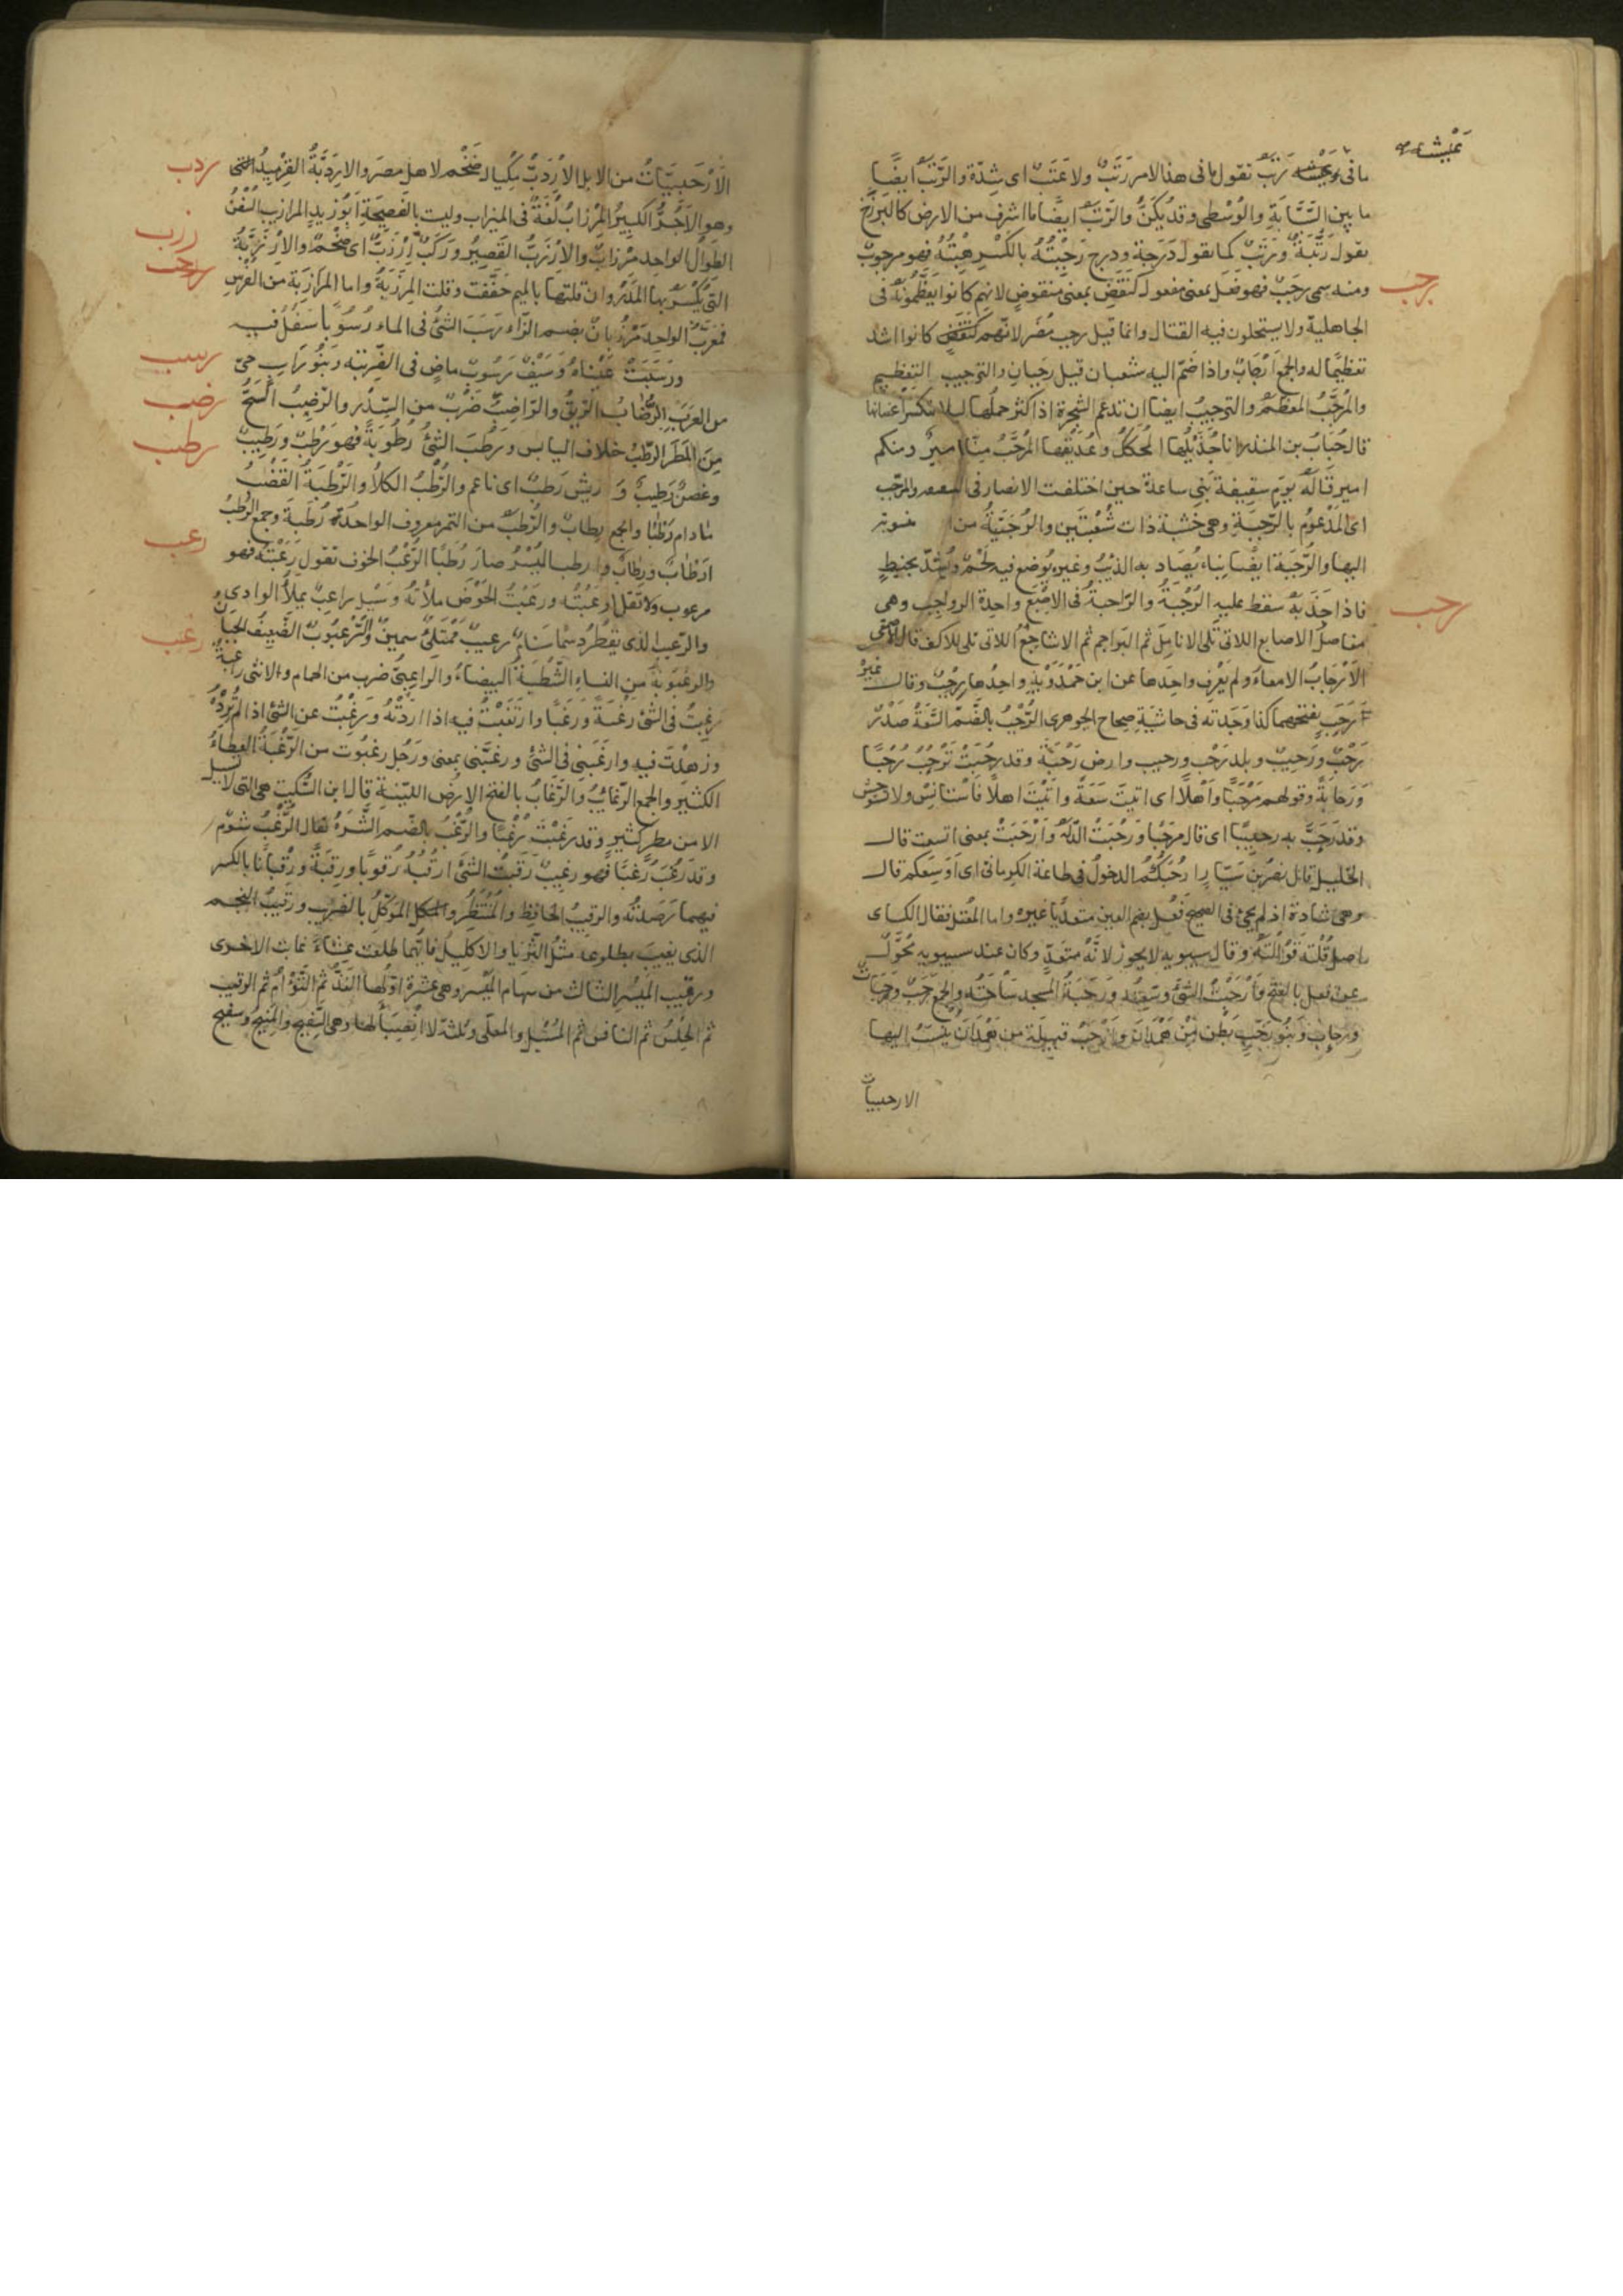 عيشه
ما فى عيشه رَتَبٌ تقول ما فى هذا الامر رَتَبٌ ولا عَتَبٌ اى شِدّة والرَّتَبُ ايضًا
ما بين السَّبّابَةِ والوُسْطى وقد يُسَكَّنُ والرَّتَبُ ايضًا ما اشرف من الارض كالبَرْزَخ
تقول رَتَبَةٌ ورَتَبٌ كما تقول دَرَجة ودرج رَجِبْتُهُ بالكَسْر هِبْتُهُ فهو مرجوبٌ
رجب
ومنه سمى رَجَبٌ فهو فَعَل بمعنى مفعول كنَقَضٍ بمعنى منقوضٍ لانهم كانوا يعظّمونه فى
الجاهلية ولا يستحلون فيه القتال وانما قيل رجب مُضَر لانّهم كانوا اشد
تعظيمًا له والجمع اَرْجَابٌ واذا ضَمّ اليه شعبان قيل رَجَبان والترجيب التعظيم
والمُرَجَّبُ المعظم والترجيبُ ايضا ان تدعم الشجرة اذا كثر حملُها ليلا تنكسر اغصانها
قال حُبَابُ بن المنذر انا جُذَيْلُها المحكّكُ وعُذَيْقها المُرَجَّبُ مِنّا اميرٌ ومنكم
امير قَالَه يوم سقيفة بَنِى ساعدة حين اختلفت الانصار فى البيعة والمرجّب
اى المَدْعُومُ بالرُّجْبَةِ وهى خشبة ذات شُعْبَتَين والرُّجَبِيَّةُ من منسوبة
اليها والرُّجْبَة ايضا بناء يُصَاد به الذِّئبُ وغيره يُوضع فيه لحْمٌ ويُشَدّ بخيط
فاذا جَذَبَهُ سقط عليه الرُّجْبَةُ والرّاجِبةُ فى الاصْبَع واحدة الرواجِب وهى
مفاصلُ الاصابع اللاتى تلى الانامِل ثم البَراجم ثم الاشاجِعُ اللاتى تلى الكف قال الاصمعى
الاَرْجَابُ الامعاءُ ولم يَعْرِف واحِدَها عن ابن حَمْدَوَيْهِ واحِدُها رِجْبٌ وقال غيرُ
رَجَب بفتحهما كذا وَجَدته فى حاشية صحاح الجوهرى الرُّحْبُ بالضّمّ السَّعَةُ صَدْرٌ
رحب
رَحْبٌ ورَحِيبٌ وبلد رَحْب ورحيب وارض رَحْبَةٌ وقد رَحُبَتْ تَرْحُبُ رُحْبًا
وَرَحابةً وقولهم مَرْحَبًا وَاَهْلًا اى اتيتَ سَعَةً واتَيْتَ اهلًا فَاسْتأنِسْ ولا تستوحش
وقد رَحَّبَ به ترحيبًا اى قال مرحَبًا ورَحُبَتْ الدار واَرْحَبَتْ بمعنى اتسعت قال
الخليل قال نصرُ بن سَيّار رَحُبَكُم الدخولُ فى طاعة الكرمانى اى اَوَسِعَكم قال
وهى شاذة اذ لم يجئ فى الصحيح فَعُل بضم العين متعدّيًا غيره واما المعْتل فقال الكساى
اصل قُلْتَه قَوُلْتَه وقال سيبويه لا يجوز لانّهُ متعَدّ وكان عند سيبويه مُحَوَّل
عين فعل بالفتح وأرْحَبْتُ الشئَ وسَّعْته ورَحَبَةُ المسجد سَاحَتُهُ والجمع رَحَبٌ ورَحَبَاتٌ
ورِحَابٌ وبَنُو رَحَبٍ بَطن مِنْ هَمْدَانَ وَاَرْحَبُ قبيلة من هَمْدَانَ ينسب اليها
الارحبيات
الاَرْحَبِيّاتُ من الابل الاِرْدَبُّ مِكْيال ضَخْم لاهل مصر والاِرْدَبَّةُ القِرْمِيدُ
ردب
وهو الآجُرُّ الكبيرُ المِرْزابُ لُغةٌ فى الميزاب وليست بالفصيحة ابُو زيدٍ المرازيب السُّفُنُ
رزب
الطِوَالُ الواحد مِرْزابٌ والاِرْزَبُّ القصيرُ ورَكَبٌ اِرْزَبٌّ اى ضَخْمٌ والاِرْزَبَّةُ
التى يُكْسَرُ بها المَدَرُ وان قلتها بالميم خفَّفت وقلت المِرْزَبةُ واما المَرَازبَة من الفُرْسِ
فمعَرّبٌ الواحد مَرْزُبانٌ بضم الزّاء رَسَبَ الشئُ فى الماء رُسُوبًا سَفُلَ فيه
رسب
ورَسَبَتْ عَيْناهُ وسَيْفٌ رَسُوبٌ ماضٍ فى الضّريبَة وبَنُو رَاسِبٍ حىّ
من العَرَب الرُّضَابُ الرِّيقُ والرّاضِبُ ضَرْبٌ من السِّدْر والرّاضِبُ السَّحُّ
رضب
مِنَ المَطَر الرّطْبُ خلاف اليابس ورَطُبَ الشئُ رُطُوبَةً فهو رَطْبٌ ورَطِيبٌ
رطب
وغصنٌ رَطِيبٌ وَ ريش رَطيبٌ اى ناعم والرُّطْبُ الكلأُ والرَّطْبَةُ القَضْبُ
مَادام رَطْبًا والجمع رِطابٌ والرُّطَبُ من التمر معروف الواحدة رُطَبة وجمع الرُّطَبُ
ارْطابٌ ورِطابٌ وارطب البُسْرُ صارَ رُطَبًا الرُّعْبُ الخوف تقول رَعَبْتُه فهو
رعب
مرعوب ولا تقل ارعَبْتُه ورَعَبْتُ الحَوْضَ ملأتُه وسَيْل راعِبٌ يملأُ الوادِى
والرّعيب الذى يقطُرُ دسَمًا سَنامٌ رعيبٌ مُمْتَلِئٌ سمينٌ والرِّعْبُوبُ الضَّعِيفُ الجَبَانُ
والرعْبُوبةُ مِن النساءِ الشَّطْبَةُ البيضاءُ والراعِبِىُّ ضرب من الحمام والانثى راعبيّةٌ
رغبتُ فى الشئِ رَغْبَةً ورَغَبًا وارتَغَبْتُ فيه اذا اردْتُهُ ورَغِبْتُ عن الشئِ اذا لم تُرِدْهُ
رغب
وزهدْت فيه وارغَبَنِى فى الشئِ ورغَّبَنى بمعنى ورَجُل رغبُوت من الرّغْبَةُ العطاءُ
الكثير والجمع الرّغائبُ والرَّغَابُ بالفتح الارضُ الليّنة قال ابن السّكيت هى التى لا تسيل
الا من مطر كثيرٍ وقد رَغُبَتْ رُغْبًا والرُّغْبُ بالضّم الشَّرَهُ يقال الرُّغْبُ شؤم
وقد رَغُبَ رُغْبًا فهو رغِيبٌ رَقَبْتُ الشئَ ارقُبُه رُقوبًا ورِقْبَةً ورِقْبانًا بالكسر
فيهما رَصَدْتُه والرقيبُ الحافِظُ والمُنْتَظِرُ والموكّلُ بالضّرِيب ورَقيبُ النجم
الذى يغيبُ بطلوعه مثلُ الثُّرَيَّا والاكليل فانّهما طلعت عِشاءً غابت الاخرى
ورقيب المَيْسِر الثالث من سِهَام المَيْسِر وهى عَشَرة اوّلُها الفَذُّ ثم التَّوْءَامُ ثم الرقيب
ثم الحِلْسُ ثم النافس ثم المُسْبِل والمعلّى وثلثة لا اَنْصِبَاءَ لها وهى السَّفيح والمَنِيح وسفيح